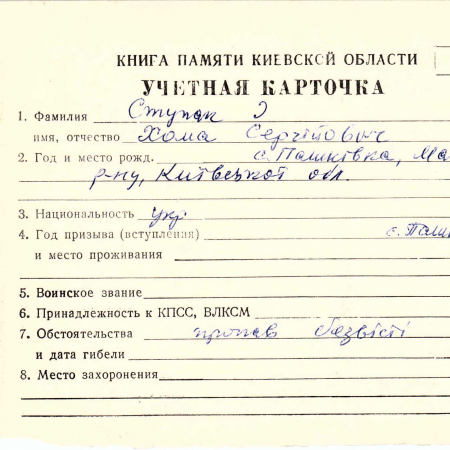 КНИГА ПАМЯТИ КИЕВСКОЙ ОБЛАСТИ
УЧЕТНАЯ КАРТОЧКА
1. Фамилия Ступак
имя, отчество Хома Сергійович
2. Год и место рожд. с. Пашківка, Ма
р-ну, Київської обл.
3. Национальность укр
4. Год призыва (вступления) с. Паш
и место проживания
5. Воинское звание
6. Принадлежность к КПСС, ВЛКСМ
7. Обстоятельства пропав безвісті
и дата гибели
8. Место захоронения